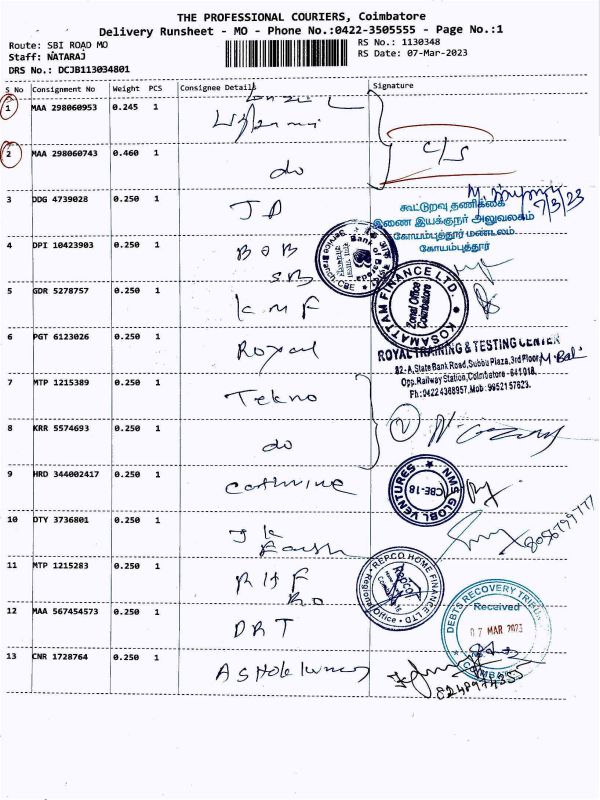 THE PROFESSIONAL COURIERS, Coimbatore
Delivery Runsheet - MO - Phone No.:0422-3505555 - Page No.:1
Route: SBI ROAD MO
RS No.: 1130348
Staff: NATARAJ
RS Date: 07-Mar-2023
DRS No.: DCJB113034801
S No Consignment No Weight PCS Consignee Details Signature
1 MAA 298060953 0.245 1
2 MAA 298060743 0.460 1 do C/S
3 DDG 4739028 0.250 1 JD
7/3/23
கூட்டுறவு தணிக்கை
இணை இயக்குநர் அலுவலகம்
கோயம்புத்தூர் மண்டலம்
கோயம்புத்தூர்
4 DPI 10423903 0.250 1 BOB
SB
Service Branch, CBE Bank of Baroda
5 GDR 5278757 0.250 1 KMF
KOSAMATTAM FINANCE LTD.
Zonal Office
Coimbatore
6 PGT 6123026 0.250 1 Royal
ROYAL TRAINING & TESTING CENTER
82-A, State Bank Road, Subbu Plaza, 3rd Floor
Opp. Railway Station, Coimbatore - 641018.
Ph: 04224368957, Mob: 9952157623.
M. Bal
7 MTP 1215389 0.250 1 Tekno
8 KRR 5574693 0.250 1 do 2
9 HRD 344002417 0.250 1
NMS GLOBL VENTURES
CBE-18
10 DTY 3736801 0.250 1 JK
11 MTP 1215283 0.250 1 RHF
RO
REPCO HOME FINANCE LTD
Regional Office
12 MAA 567454573 0.250 1 DRT
DEBTS RECOVERY TRIBUNAL
Received
07 MAR 2023
COIMBATORE
13 CNR 1728764 0.250 1 Ashok kumar
8248974355